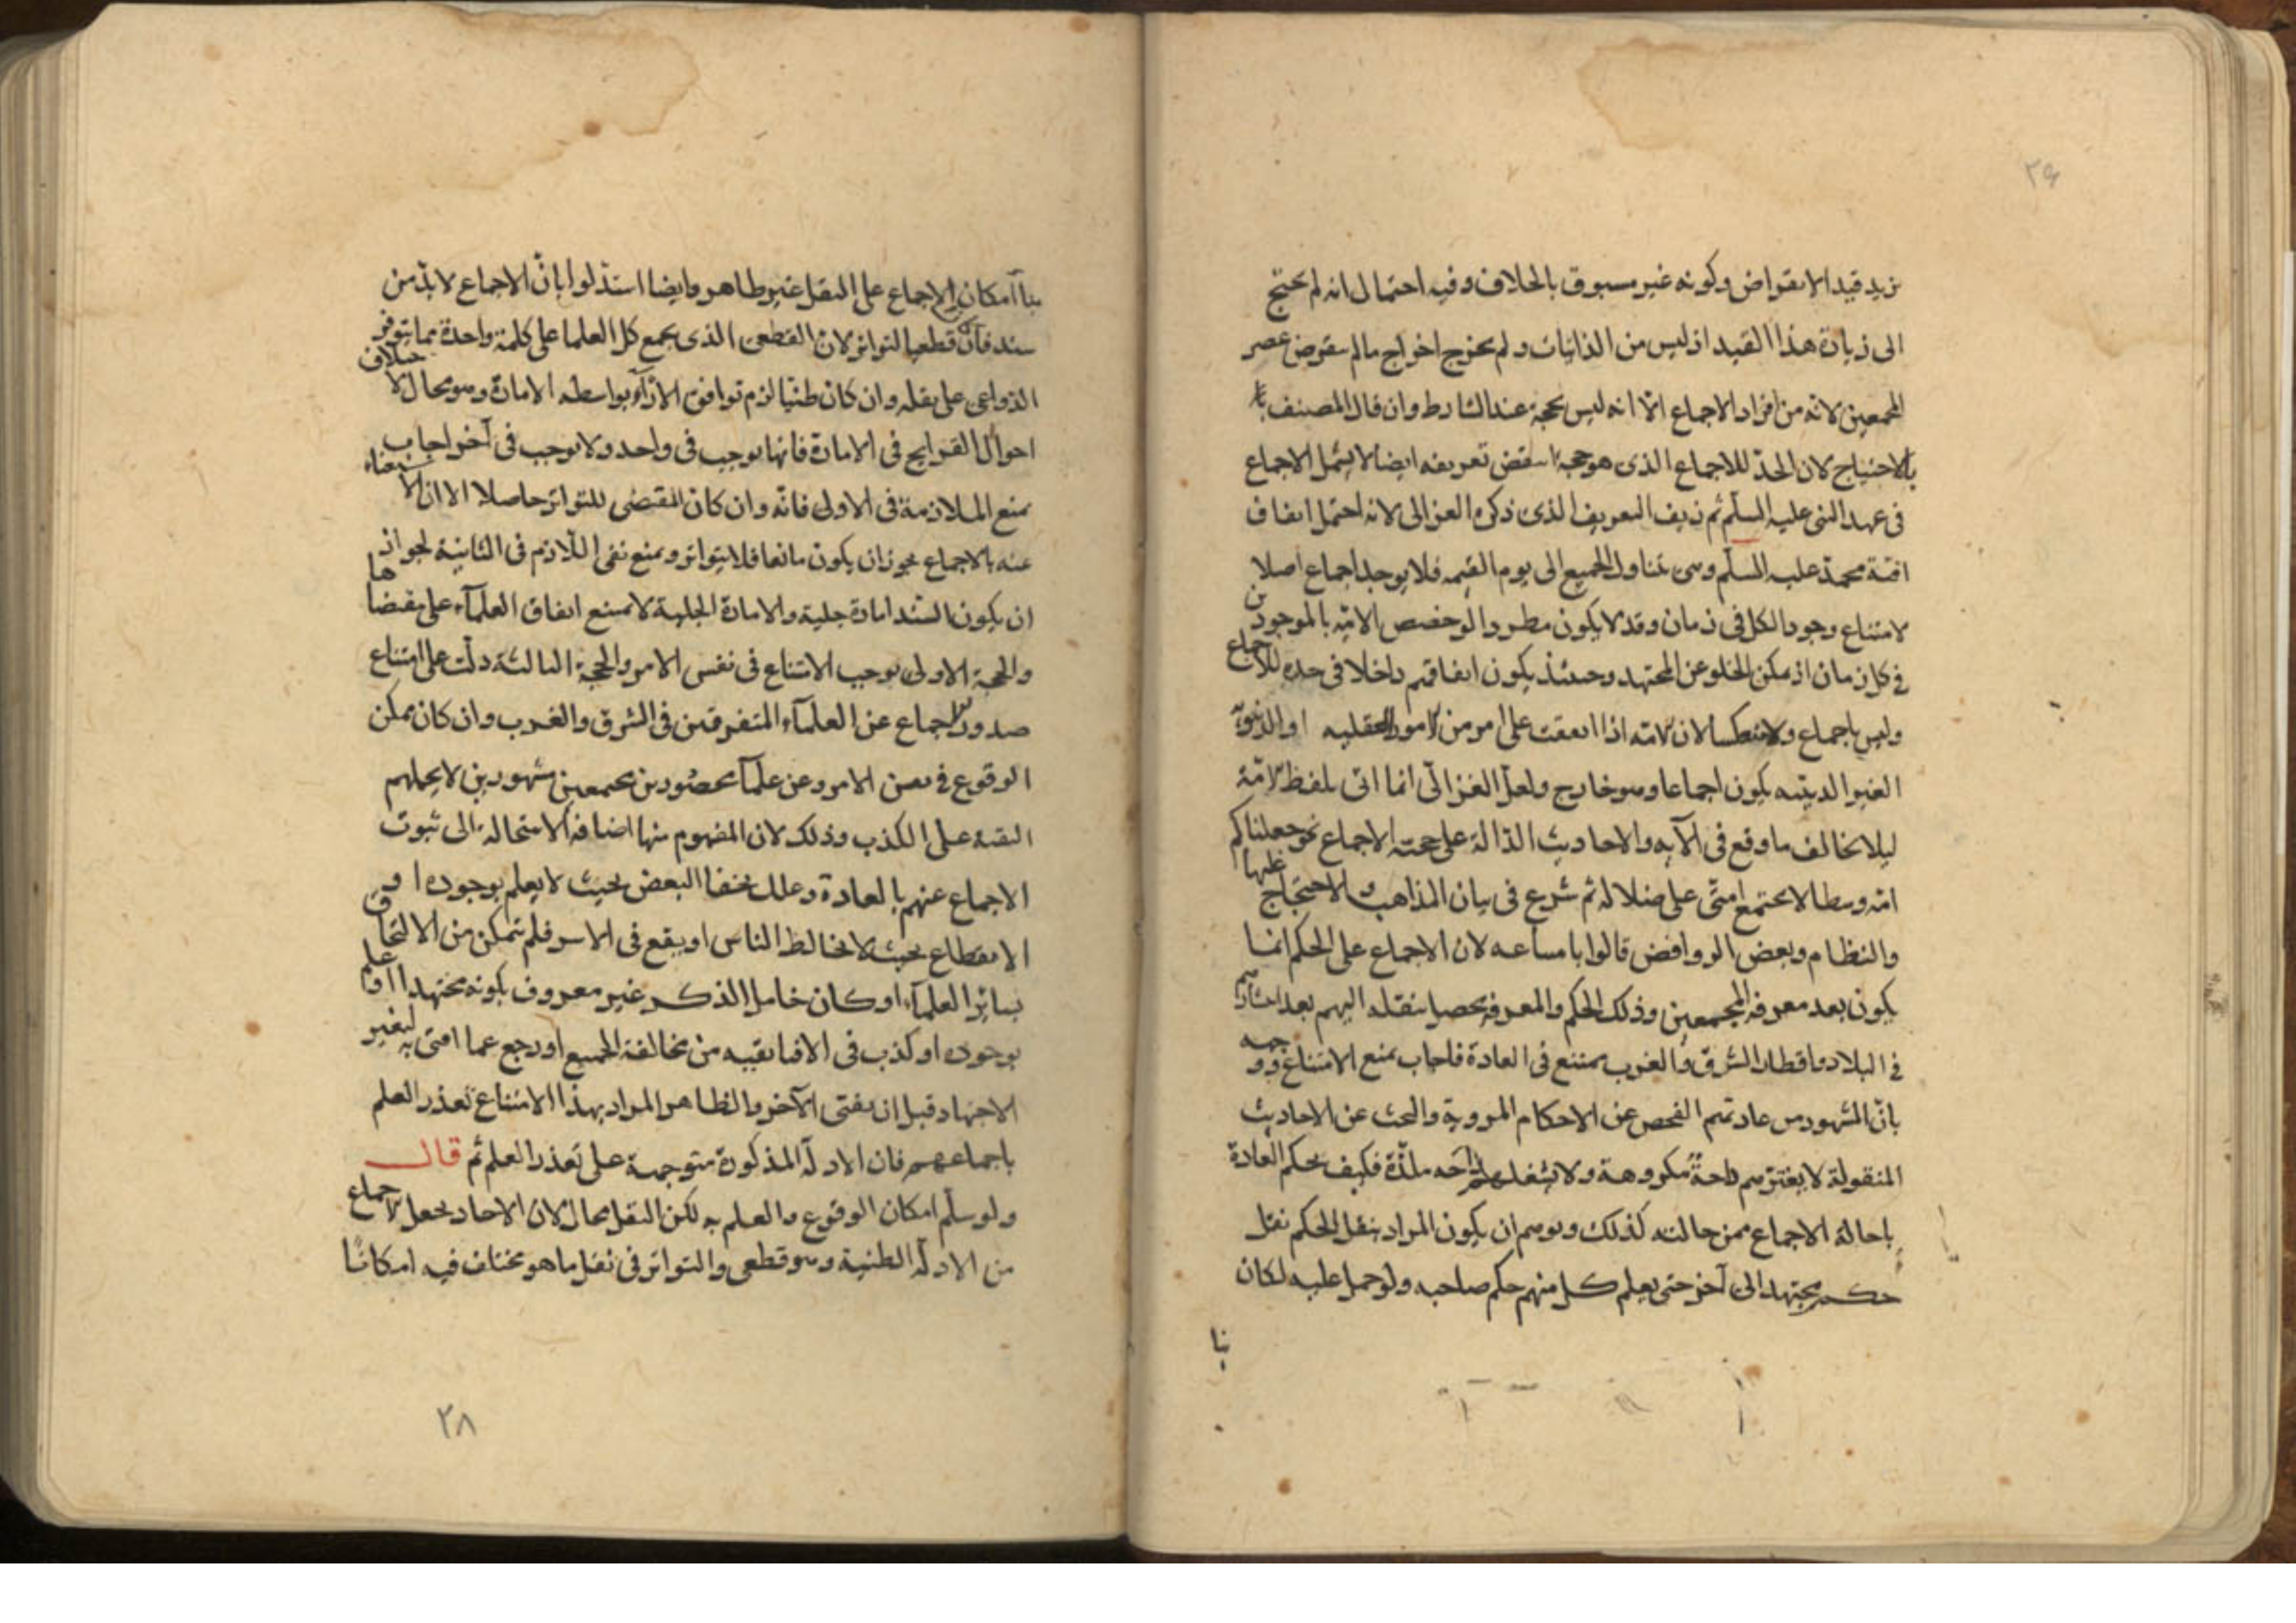 ٣٩
يزيد قيد الانقراض وكونه غير مسبوق بالخلاف وفيه احتمال انه لم يحتج
الى زيادة هذا القيد اذ ليس من الذاتيات ولم يحتج اخراج مالم ينقرض عصر
المجمعين لانه من افراد الاجماع الا انه ليس بحجة عند الشارط وان قال المصنف
بالاحتياج لان الحد للاجماع الذى هو حجة انتقض تعريفه ايضا لا يشمل الاجماع
فى عهد النبى عليه السلم ثم زيف التعريف الذى ذكره الغزالى لانه احتمل اتفاق
امة محمد عليه السلم وهى تتناول الجميع الى يوم القيمه فلا يوجد اجماع اصلا
لامتناع وجود الكل فى زمان وقد لا يكون مطردا لو خصص الامة بالموجودين
فى كل زمان اذ يمكن الخلو عن المجتهد وحينئذ يكون اتفاقهم داخلا فى حده للاجماع
وليس باجماع ولا منعكسا لان الامة اذا اتفقت على امر من الامور العقليه او الدنيوية
الغير الدينيه يكون اجماعا وهو خارج ولعل الغزالى انما اتى بلفظ الامة
ليلا يخالف ما وقع فى الآيه والاحاديث الدالة على حجية الاجماع نحو جعلناكم
امة وسطا لا يجتمع امتى على ضلاله ثم شرع فى بيان المذاهب والاحتجاج عليها
والنظام وبعض الروافض قالوا بامتناعه لان الاجماع على الحكم انما
يكون بعد معرفة المجمعين وذلك الحكم والمعرفة يحصل بنقله اليهم بعد انتشارهم
فى البلاد واقطار الشرق والغرب يمتنع فى العادة فاجاب بمنع الامتناع ووجهه
بان المشهور من عادتهم الفحص عن الاحكام المروية والبحث عن الاحاديث
المنقولة لا يفترهم راحة مكروهة ولا يشغلهم راحه ملذة فكيف يحكم العادة
باحالة الاجماع ممن حالته كذلك ويوهم ان يكون المراد بنقل الحكم نقل
حكم مجتهد الى آخر حتى يعلم كل منهم حكم صاحبه ولو حمل عليه لكان
بنا
بنا آمكان الاجماع على النقل غير ظاهر وايضا استدلوا بان الاجماع لا بد من
سند فان كان قطعيا لتواتر لان القطعى الذى يجمع كل العلما على كلمة واحدة مما يتوفر
الدواعى على نقله وان كان ظنيا لزم توافق الآراء بواسطه الامارة وهو محال لاختلاف
احوال القرايح فى الامارة فانها توجب فى واحد ولا توجب فى آخر اجاب
بمنع الملازمة فى الاولى فانه وان كان المقتضى للتواتر حاصلا الا ان الاستغناء
عنه بالاجماع يجوز ان يكون مانعا فلا يتواتر وبمنع نفى اللازم فى الثانية لجواز
ان يكون السند امارة جلية والامارة الجلية لا تمنع اتفاق العلمآء على مقتضاها
والحجة الاولى توجب الامتناع فى نفس الامر والحجة الثالثة دلت على امتناع
صدور الاجماع عن العلمآء المتفرقين فى الشرق والغرب وان كان يمكن
الوقوع فى نفس الامر وعن علمآ محصورين مجتمعين مشهورين لا يحملهم
التقية على الكذب وذلك لان المفهوم منها اضافة الاستحالة الى ثبوت
الاجماع عنهم بالعادة وعلل بخفا البعض بحيث لا يعلم بوجوده او
الانقطاع بحيث لا يخالط الناس او يقع فى الاسر فلم يتمكن من الالتحاق
بسائر العلمآء او كان خامل الذكر غير معروف بكونه مجتهدا او اعلم
بوجوده او كذب فى الافتا تقيه من مخالفة الجميع او رجع عما افتى به لتغير
الاجتهاد قبل ان يفتى الآخر والظاهر المراد بهذا الامتناع تعذر العلم
باجماعهم فان الادلة المذكورة متوجهة على تعذر العلم ثم قال
ولو سلم امكان الوقوع والعلم به لكن النقل محال لان الاحاد يجعل الاجماع
من الادلة الظنية وهو قطعى والتواتر فى نقل ما هو مختلف فيه امكانًا
٢٨